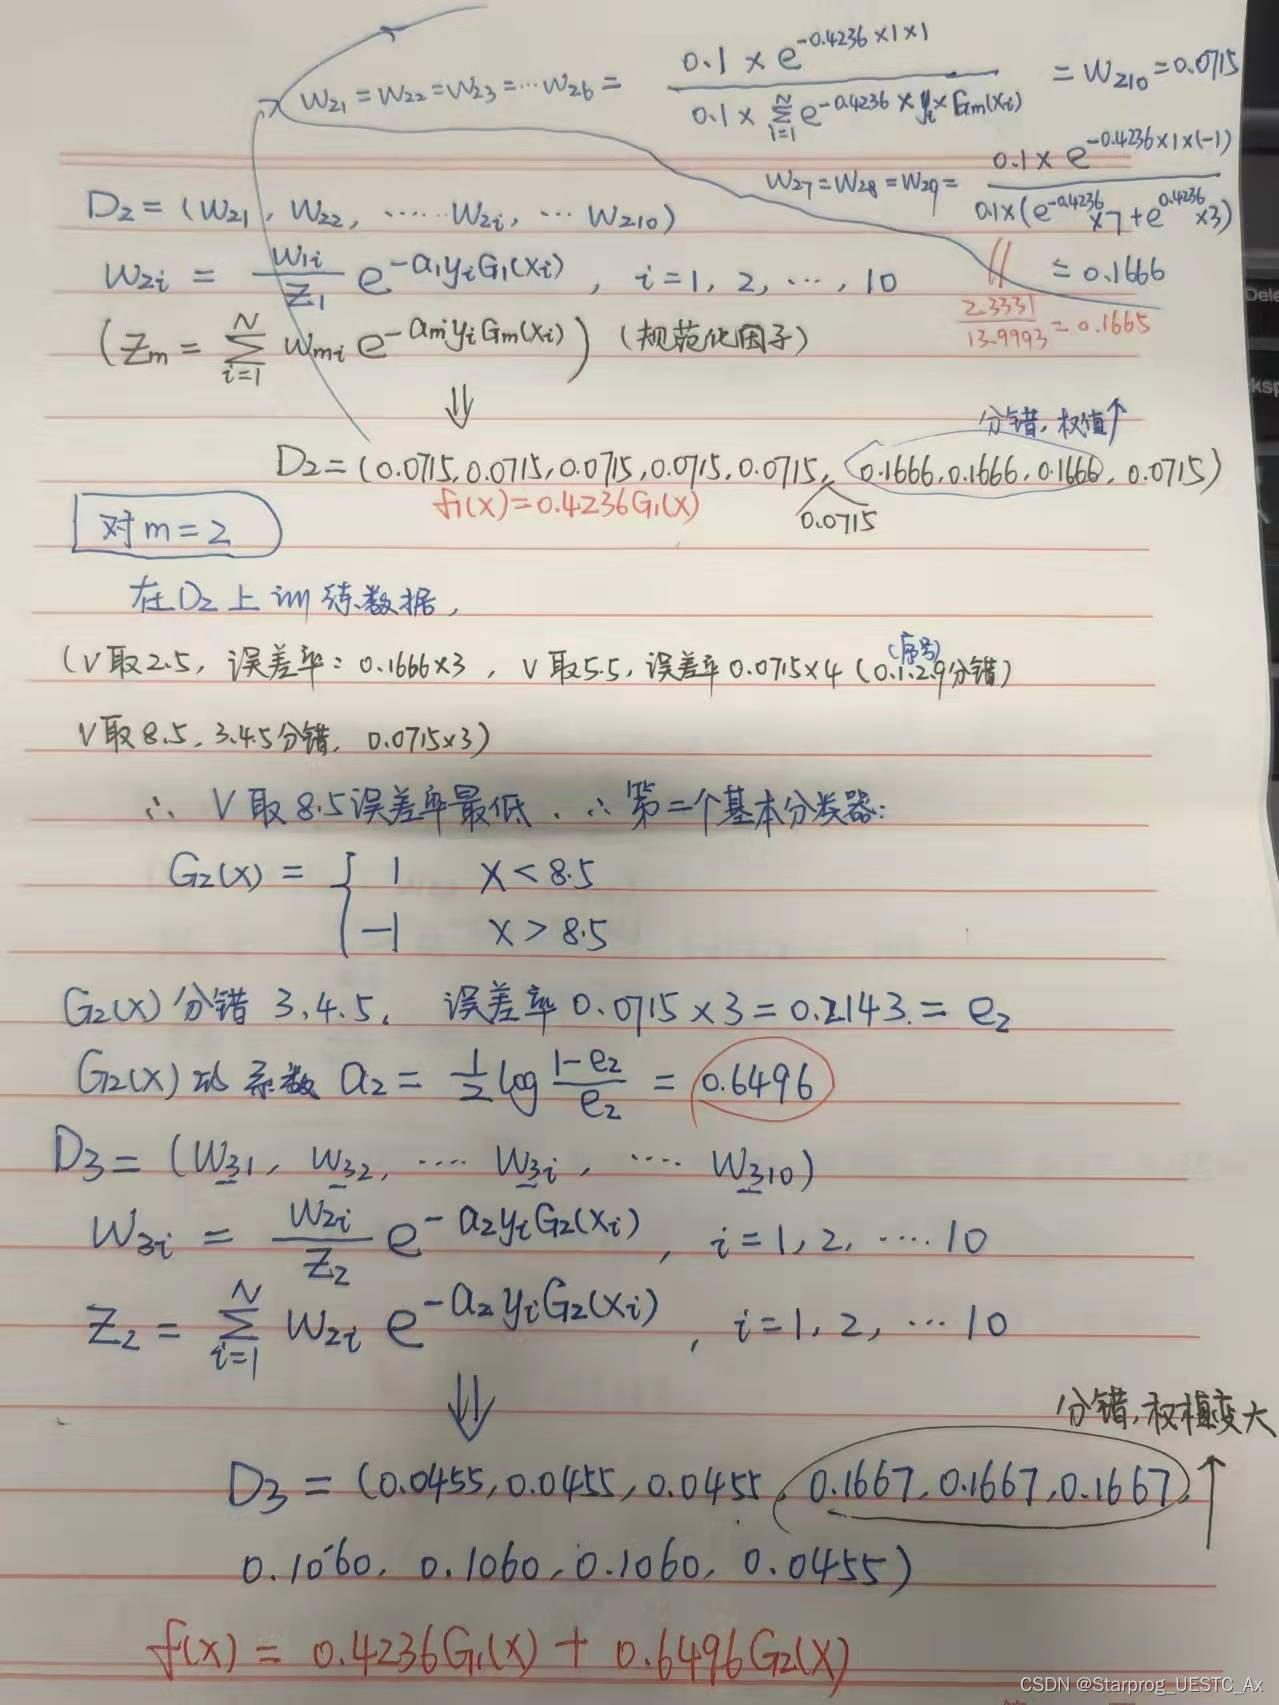 W₂₁ = W₂₂ = W₂₃ = ⋯ W₂₆ = (0.1 × e^(-0.4236×1×1)) / (0.1 × Σ_(i=1)^N e^(-0.4236 × yᵢ × Gm(xᵢ))) = W₂₁₀ = 0.0715
W₂₇ = W₂₈ = W₂₉ = (0.1 × e^(-0.4236×1×(-1))) / (0.1×(e^(-0.4236) ×7 + e^(0.4236) ×3))
= 0.1666
2.3331/13.9993 = 0.1665
D₂ = (W₂₁, W₂₂, ⋯⋯ W₂ᵢ, ⋯ W₂₁₀)
W₂ᵢ = (W₁ᵢ/Z₁) e^(-a₁yᵢG₁(xᵢ)), i = 1, 2, ⋯, 10
(Zm = Σ_(i=1)^N Wmᵢ e^(-am yᵢ Gm(xᵢ))) (规范化因子)
⇓
分错,权值↑
D₂ = (0.0715, 0.0715, 0.0715, 0.0715, 0.0715, 0.1666, 0.1666, 0.1666, 0.0715)
0.0715
f₁(x) = 0.4236G₁(x)
对 m = 2
在D₂上训练数据,
(V取2.5, 误差率: 0.1666×3, V取5.5, 误差率0.0715×4 (0.1.2.9分错)
(序号)
V取8.5, 3.4.5分错, 0.0715×3)
∴ V取8.5误差率最低. ∴ 第二个基本分类器:
G₂(x) = { 1 x < 8.5
-1 x > 8.5
G₂(x)分错 3.4.5. 误差率 0.0715×3 = 0.2143. = e₂
G₂(x)的系数 a₂ = ½ log (1-e₂)/e₂ = 0.6496
D₃ = (W₃₁, W₃₂, ⋯⋅ W₃ᵢ, ⋯⋅ W₃₁₀)
W₃ᵢ = (W₂ᵢ/Z₂) e^(-a₂yᵢG₂(xᵢ)), i = 1, 2, ⋯⋅ 10
Z₂ = Σ_(i=1)^N W₂ᵢ e^(-a₂yᵢG₂(xᵢ)), i = 1, 2, ⋯ 10
⇓
分错,权值变大 ↑
D₃ = (0.0455, 0.0455, 0.0455, 0.1667, 0.1667, 0.1667,
0.1060, 0.1060, 0.1060, 0.0455)
f(x) = 0.4236G₁(x) + 0.6496G₂(x)
CSDN @Starprog_UESTC_Ax
Dele